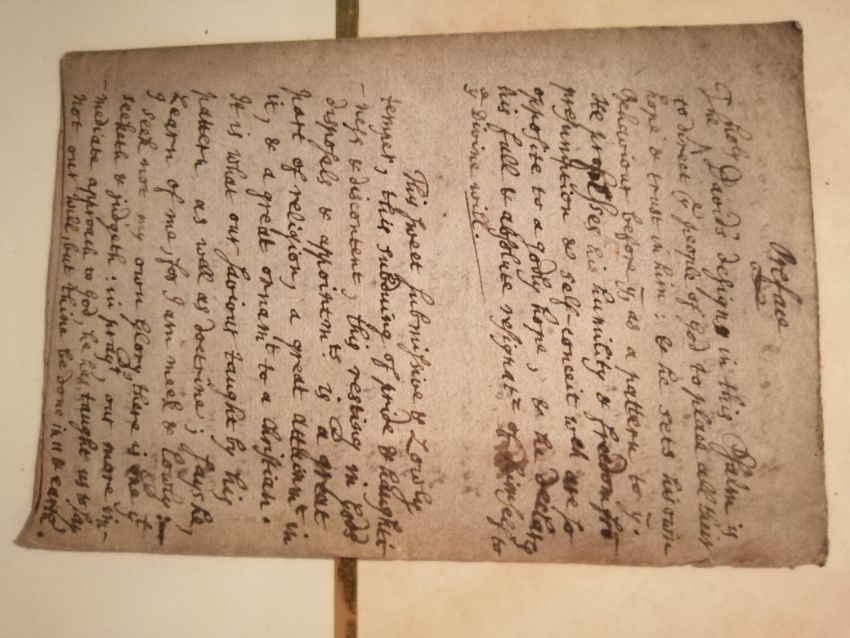 Preface
The holy Davids design in this Psalm is
to direct ye people of God to place all their
hope & trust in him: & he sets his own
behaviour before ym as a pattern to ym.
He professes his humility & freedom fro
presumption & self-conceit wch are so
opposite to a godly hope, & he declares
his full & absolute resignatn of himself to
ye Divine will.
This sweet submissive & Lowly
temper, this subduing of pride & haughti
-ness & discontent, this resting in Gods
disposals & appointmts is a great
part of religion, a great attainmt in
it, & a great ornamt to a Christian.
It is what our Saviour taught by his
pattern as well as doctrine; says he,
Learn of me, for I am meek & lowly:
I seek not my own glory, there is one yt
seeketh & judgeth: in prayr, our more im-
-mediate approach to God, he has taught us to say
not our will, but thine be done in & earth.